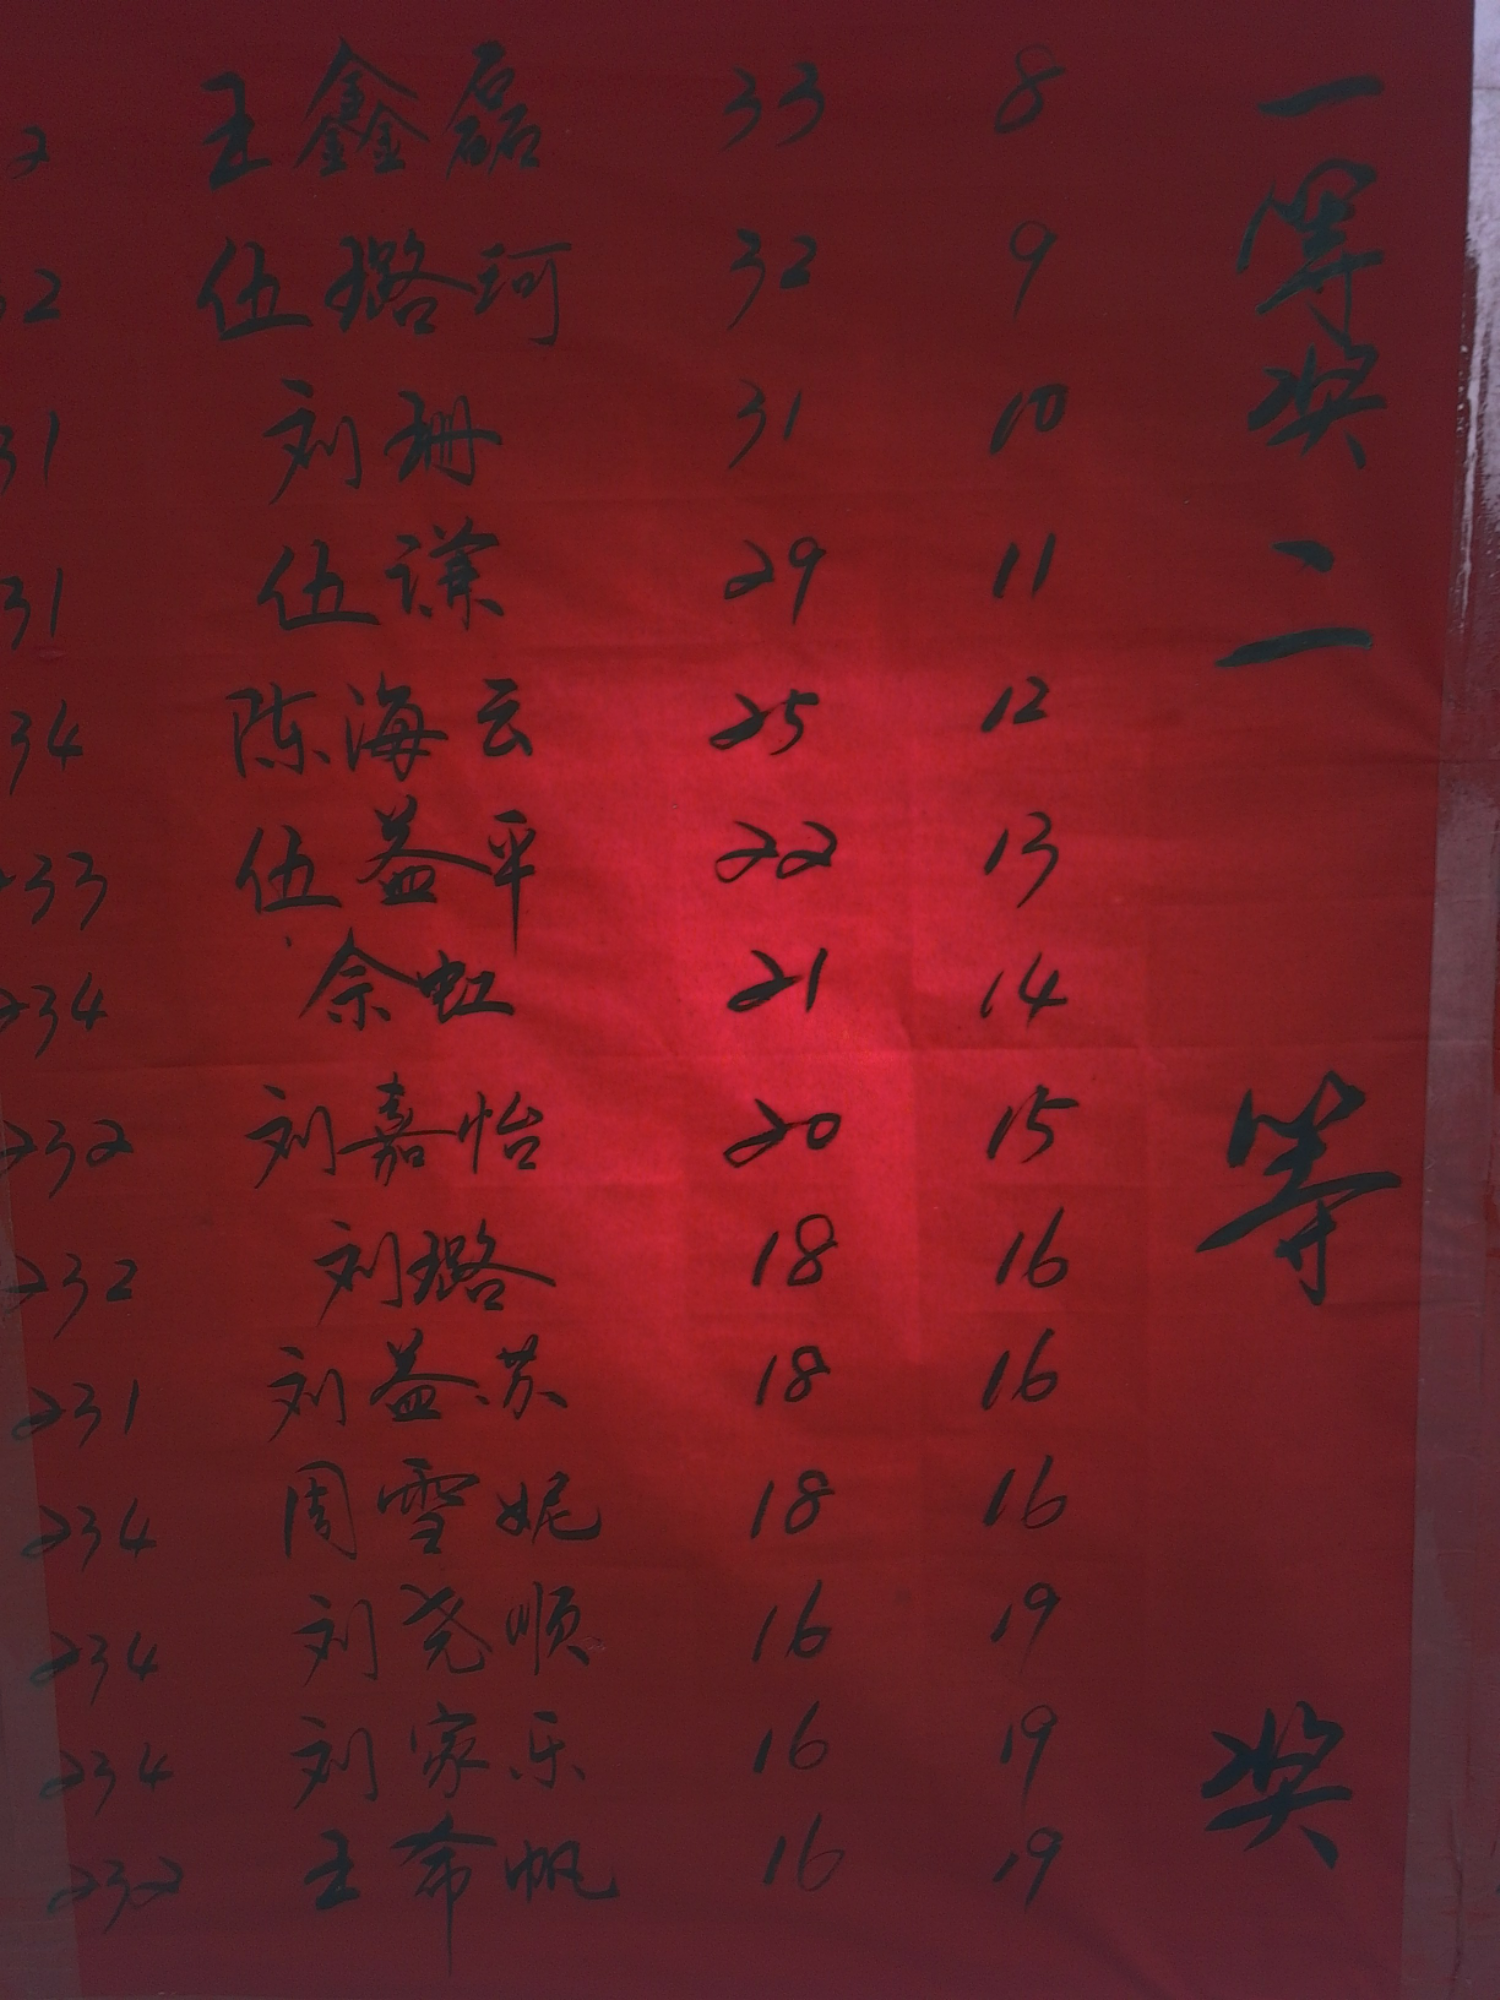 2 王鑫磊 33 8
32 伍璐珂 32 9
31 刘珊 31 10
31 伍谦 29 11
34 陈海云 25 12
233 伍益平 22 13
234 佘虹 21 14
232 刘嘉怡 20 15
232 刘璐 18 16
231 刘益苏 18 16
234 周雪妮 18 16
234 刘尧顺 16 19
234 刘家乐 16 19
232 王希帆 16 19
一等奖
二等奖